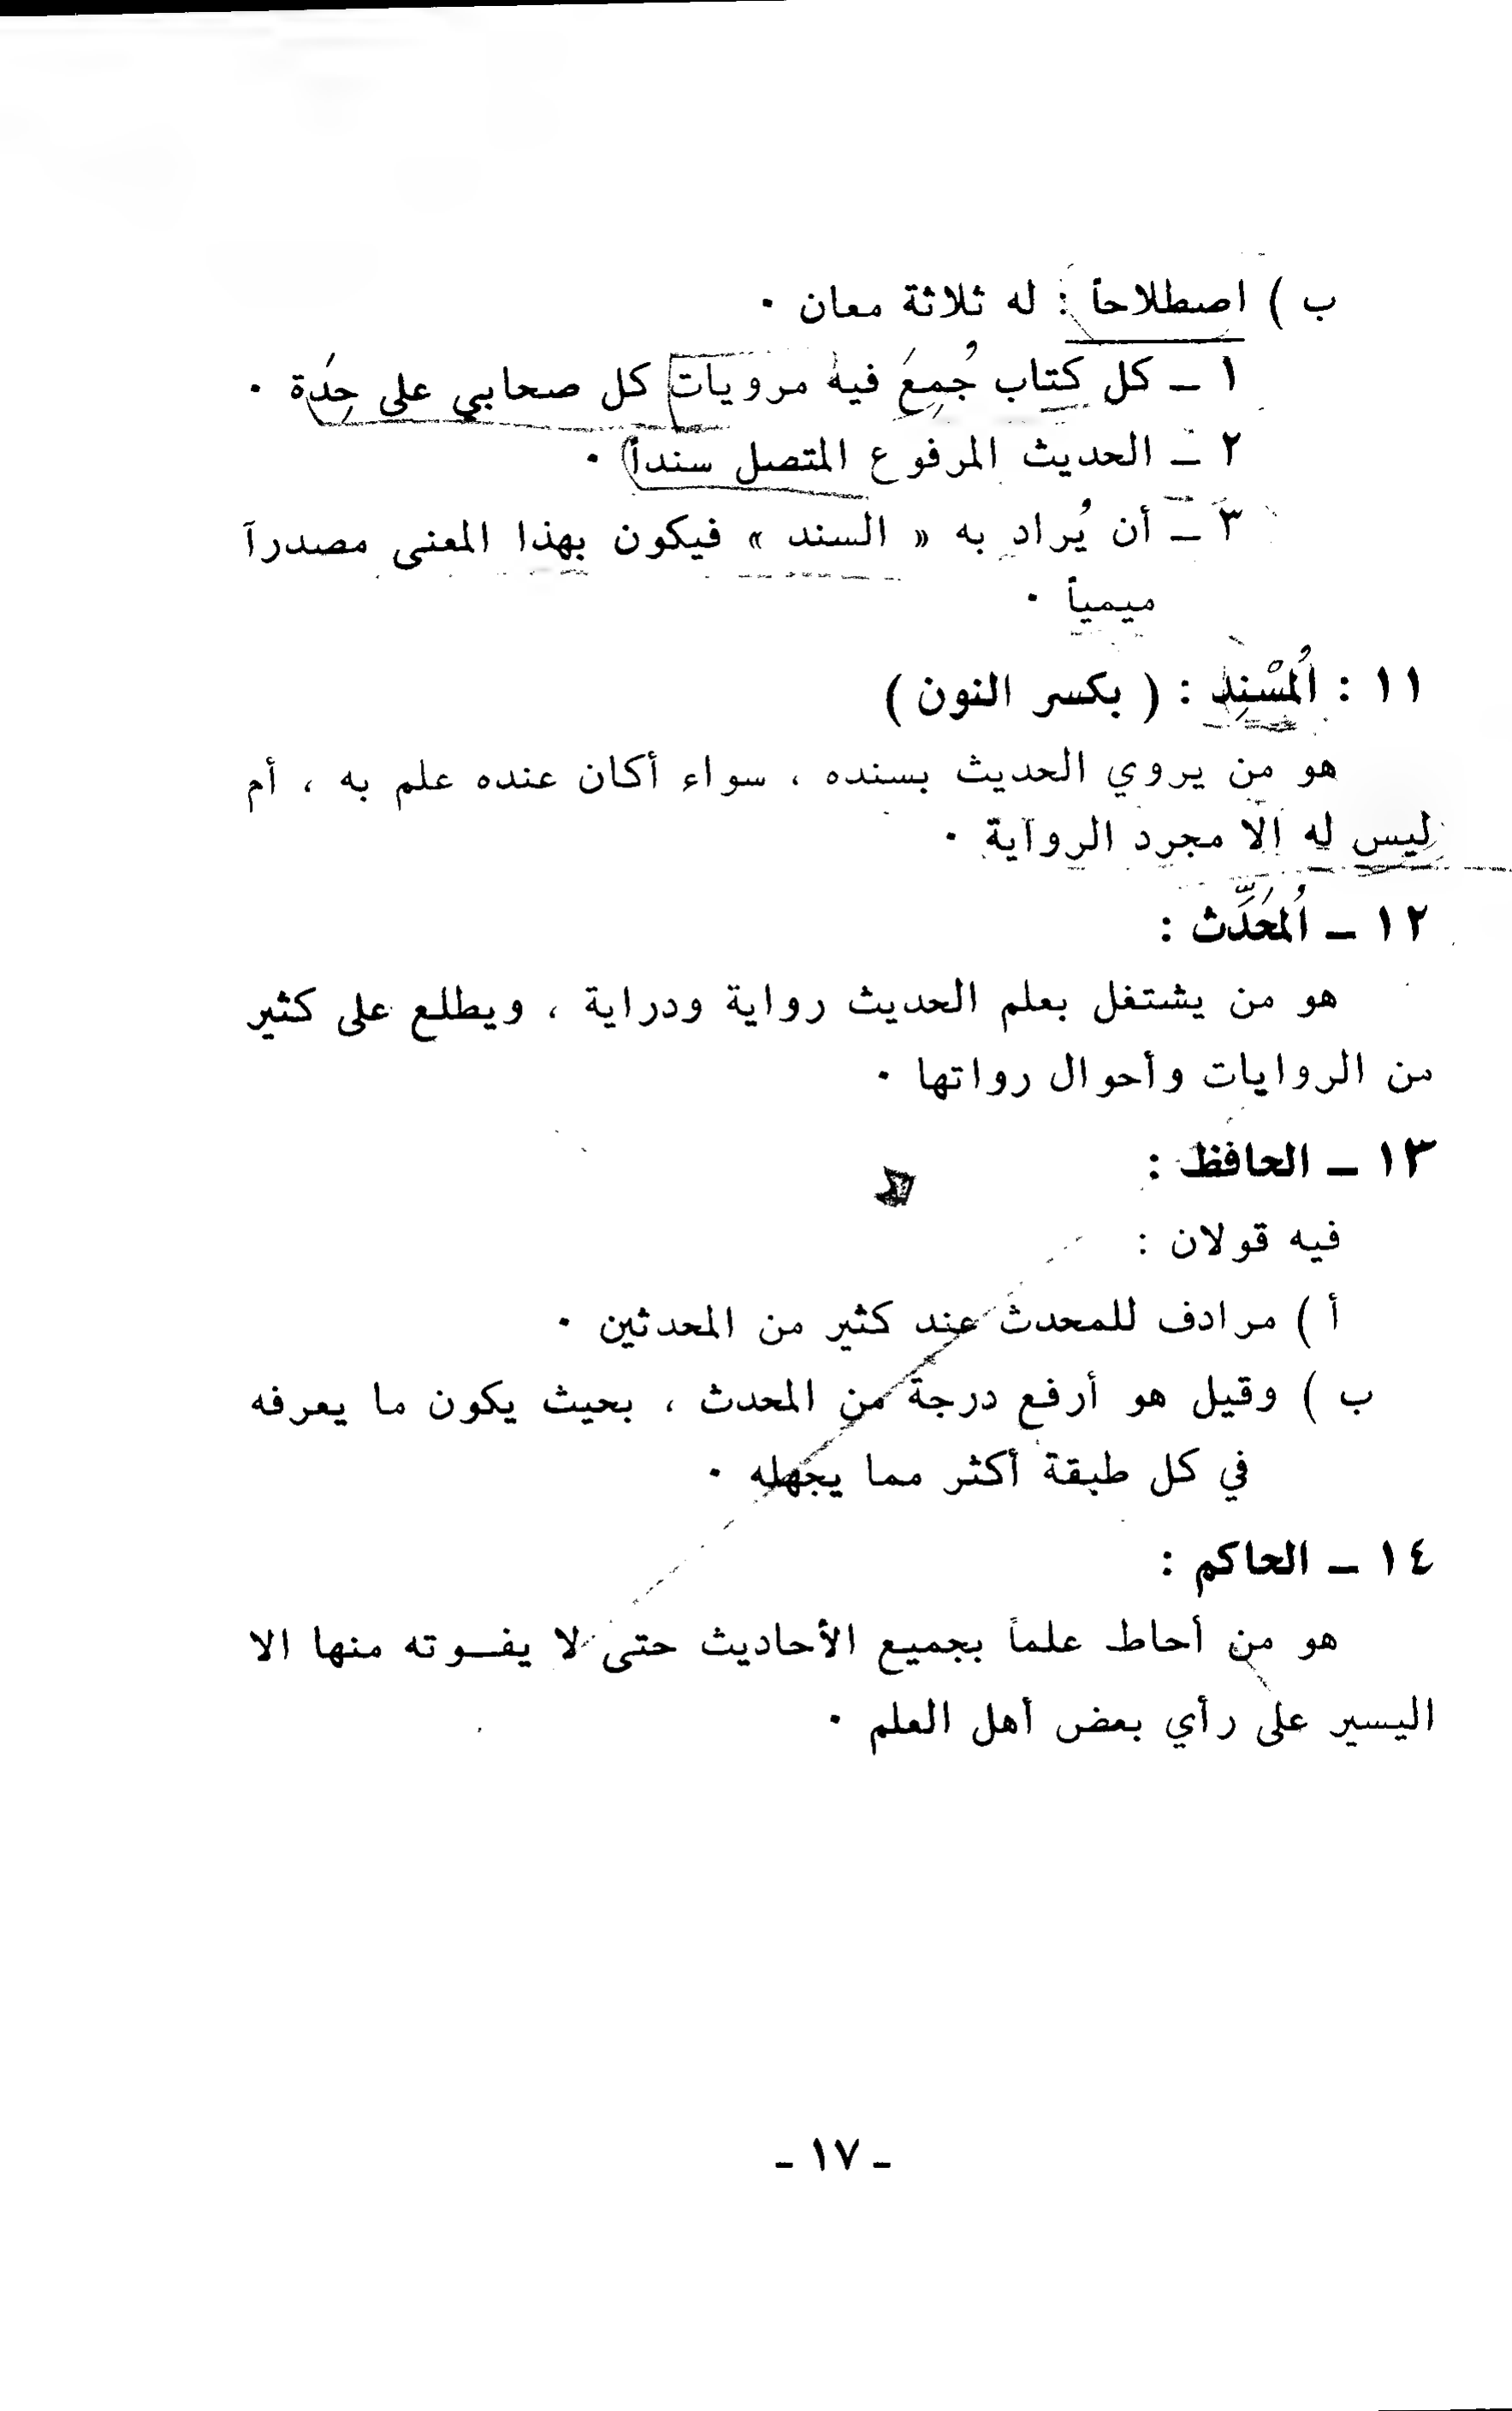 ب ) اصطلاحاً : له ثلاثة معان ٠
١ ـ كل كتاب جُمِعَ فيه مرويات كل صحابي على حِدَة ٠
٢ ـ الحديث المرفوع المتصل سنداً ٠
٣ ـ أن يُراد به « السند » فيكون بهذا المعنى مصدرآ
ميمياً ٠
١١ : اُلمسْنِد : ( بكسر النون )
هو من يروي الحديث بسنده ، سواء أكان عنده علم به ، أم
ليس له الا مجرد الرواية ٠
١٢ ـ اُلمحَدِّث :
هو من يشتغل بعلم الحديث رواية ودراية ، ويطلع على كثير
من الروايات وأحوال رواتها ٠
١٣ ـ الحافظ :
فيه قولان :
أ ) مرادف للمحدث عند كثير من المحدثين ٠
ب ) وقيل هو أرفع درجة من المحدث ، بحيث يكون ما يعرفه
في كل طبقة أكثر مما يجهله ٠
١٤ ـ الحاكم :
هو من أحاط علماً بجميع الأحاديث حتى لا يفـــوته منها الا
اليسير على رأي بعض أهل العلم ٠
ـ ١٧ ـ